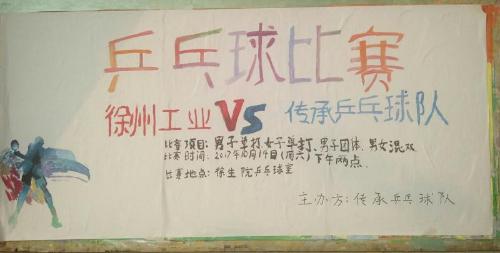 乒乓球比赛
徐州工业 VS 传承乒乓球队
比赛项目:男子单打、女子单打、男子团体、男女混双
比赛时间:2017年10月14日(周六)下午两点
比赛地点:徐生院乒乓球室
主办方:传承乒乓球队